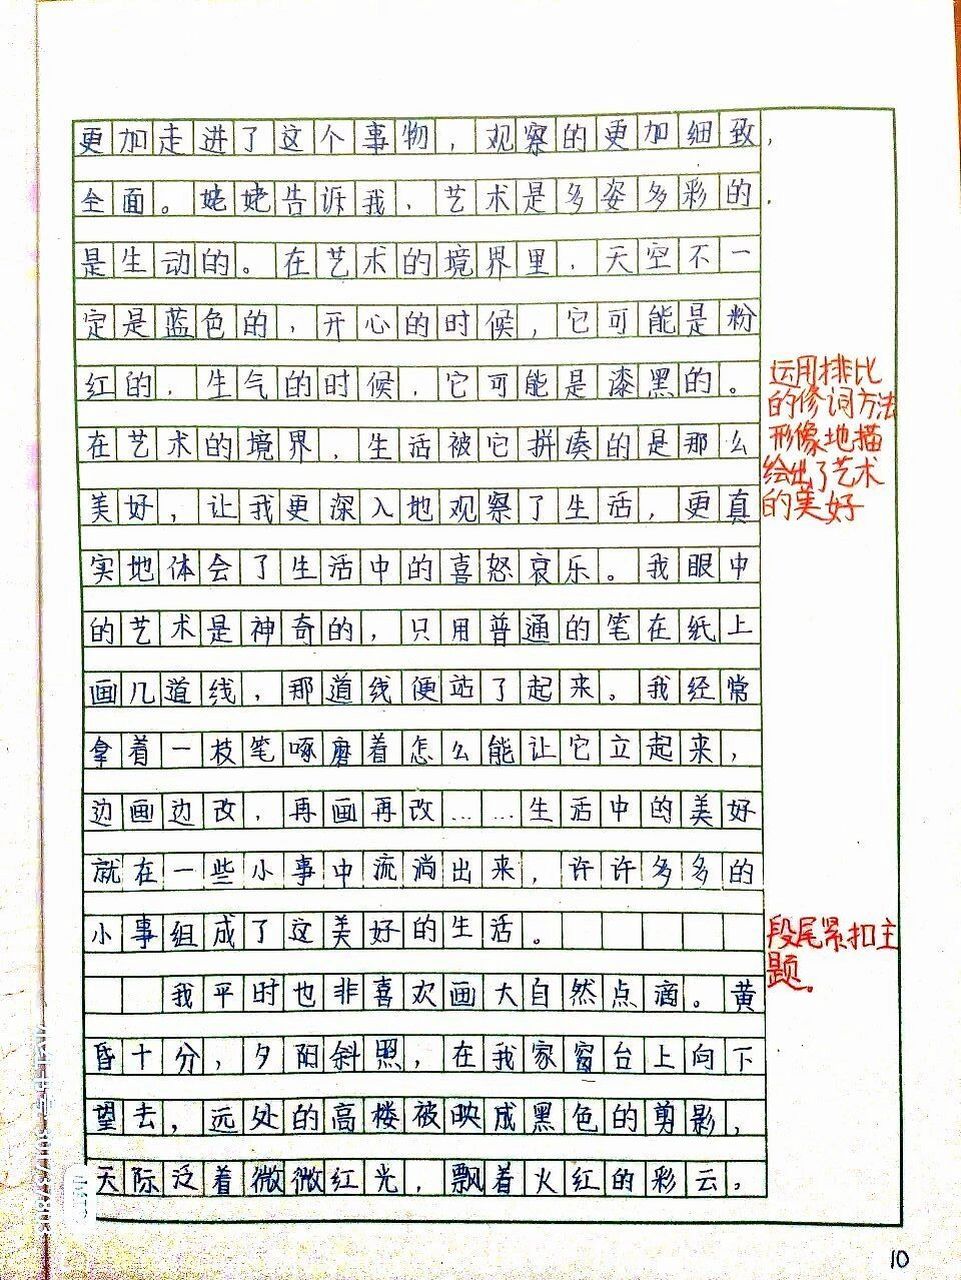 更加走进了这个事物，观察的更加细致，
全面。姥姥告诉我，艺术是多姿多彩的，
是生动的。在艺术的境界里，天空不一
定是蓝色的，开心的时候，它可能是粉
红的，生气的时候，它可能是漆黑的。
运用排比
的修词方法
形像地描
绘出了艺术
的美好
在艺术的境界，生活被它拼凑的是那么
美好，让我更深入地观察了生活，更真
实地体会了生活中的喜怒哀乐。我眼中
的艺术是神奇的，只用普通的笔在纸上
画几道线，那道线便站了起来。我经常
拿着一枝笔啄磨着怎么能让它立起来，
边画边改，再画再改……生活中的美好
就在一些小事中流淌出来，许许多多的
小事组成了这美好的生活。
段尾紧扣主
题。
我平时也非喜欢画大自然点滴。黄
昏十分，夕阳斜照，在我家窗台上向下
望去，远处的高楼被映成黑色的剪影，
天际泛着微微红光，飘着火红的彩云。
10